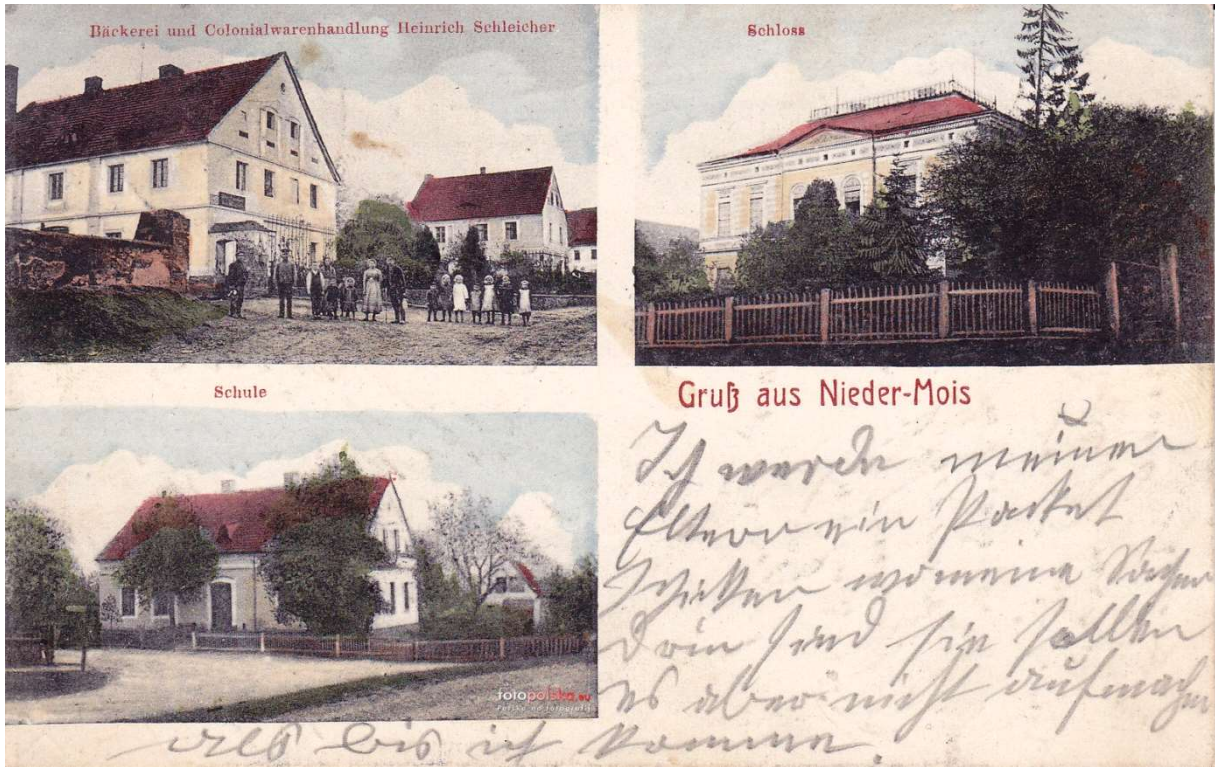 Bäckerei und Colonialwarenhandlung Heinrich Schleicher
Schloss
Schule
Gruß aus Nieder-Mois
Ich werde meinen
Eltern ein Packet
schicken wo meine Sachen
drin sind sie sollen
es aber nicht aufmachen
als bis ich komme.
fotopolska.eu
Polska na fotografii